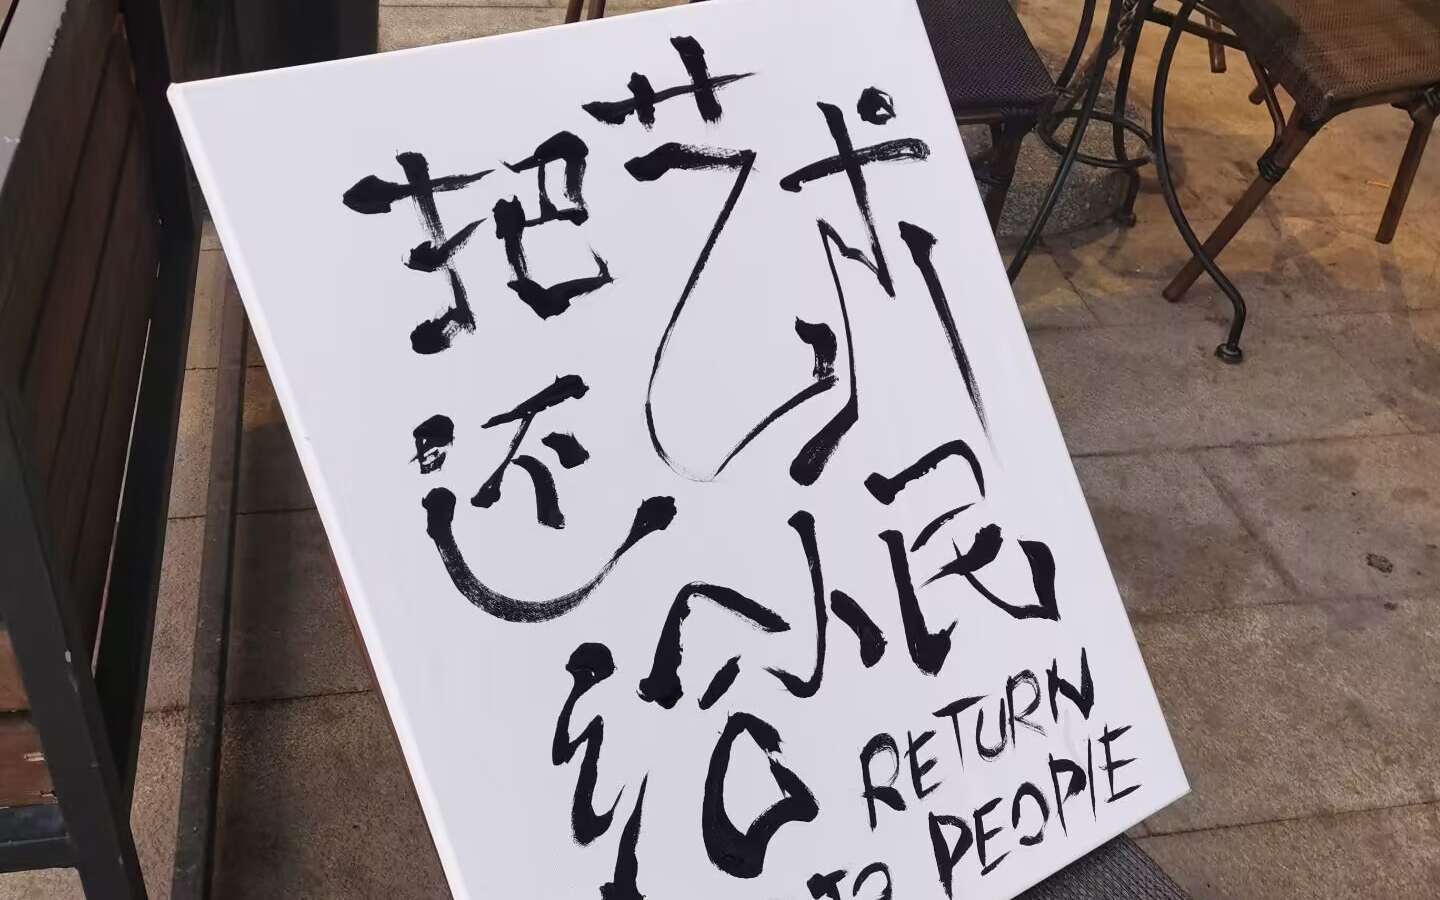 把艺术
还给人民
RETURN
TO PEOPLE